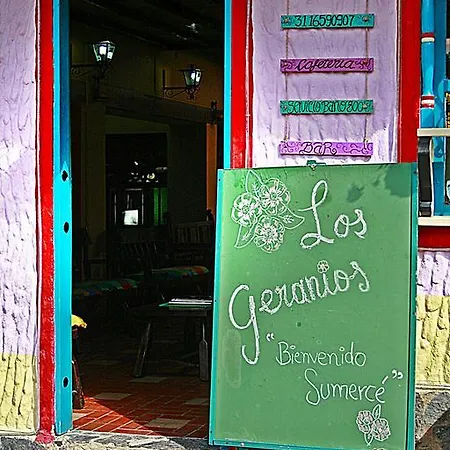 3116590907
Cafeteria
Servicio Baño $00
BAR
Los
Geranios
"Bienvenido
Sumercé"